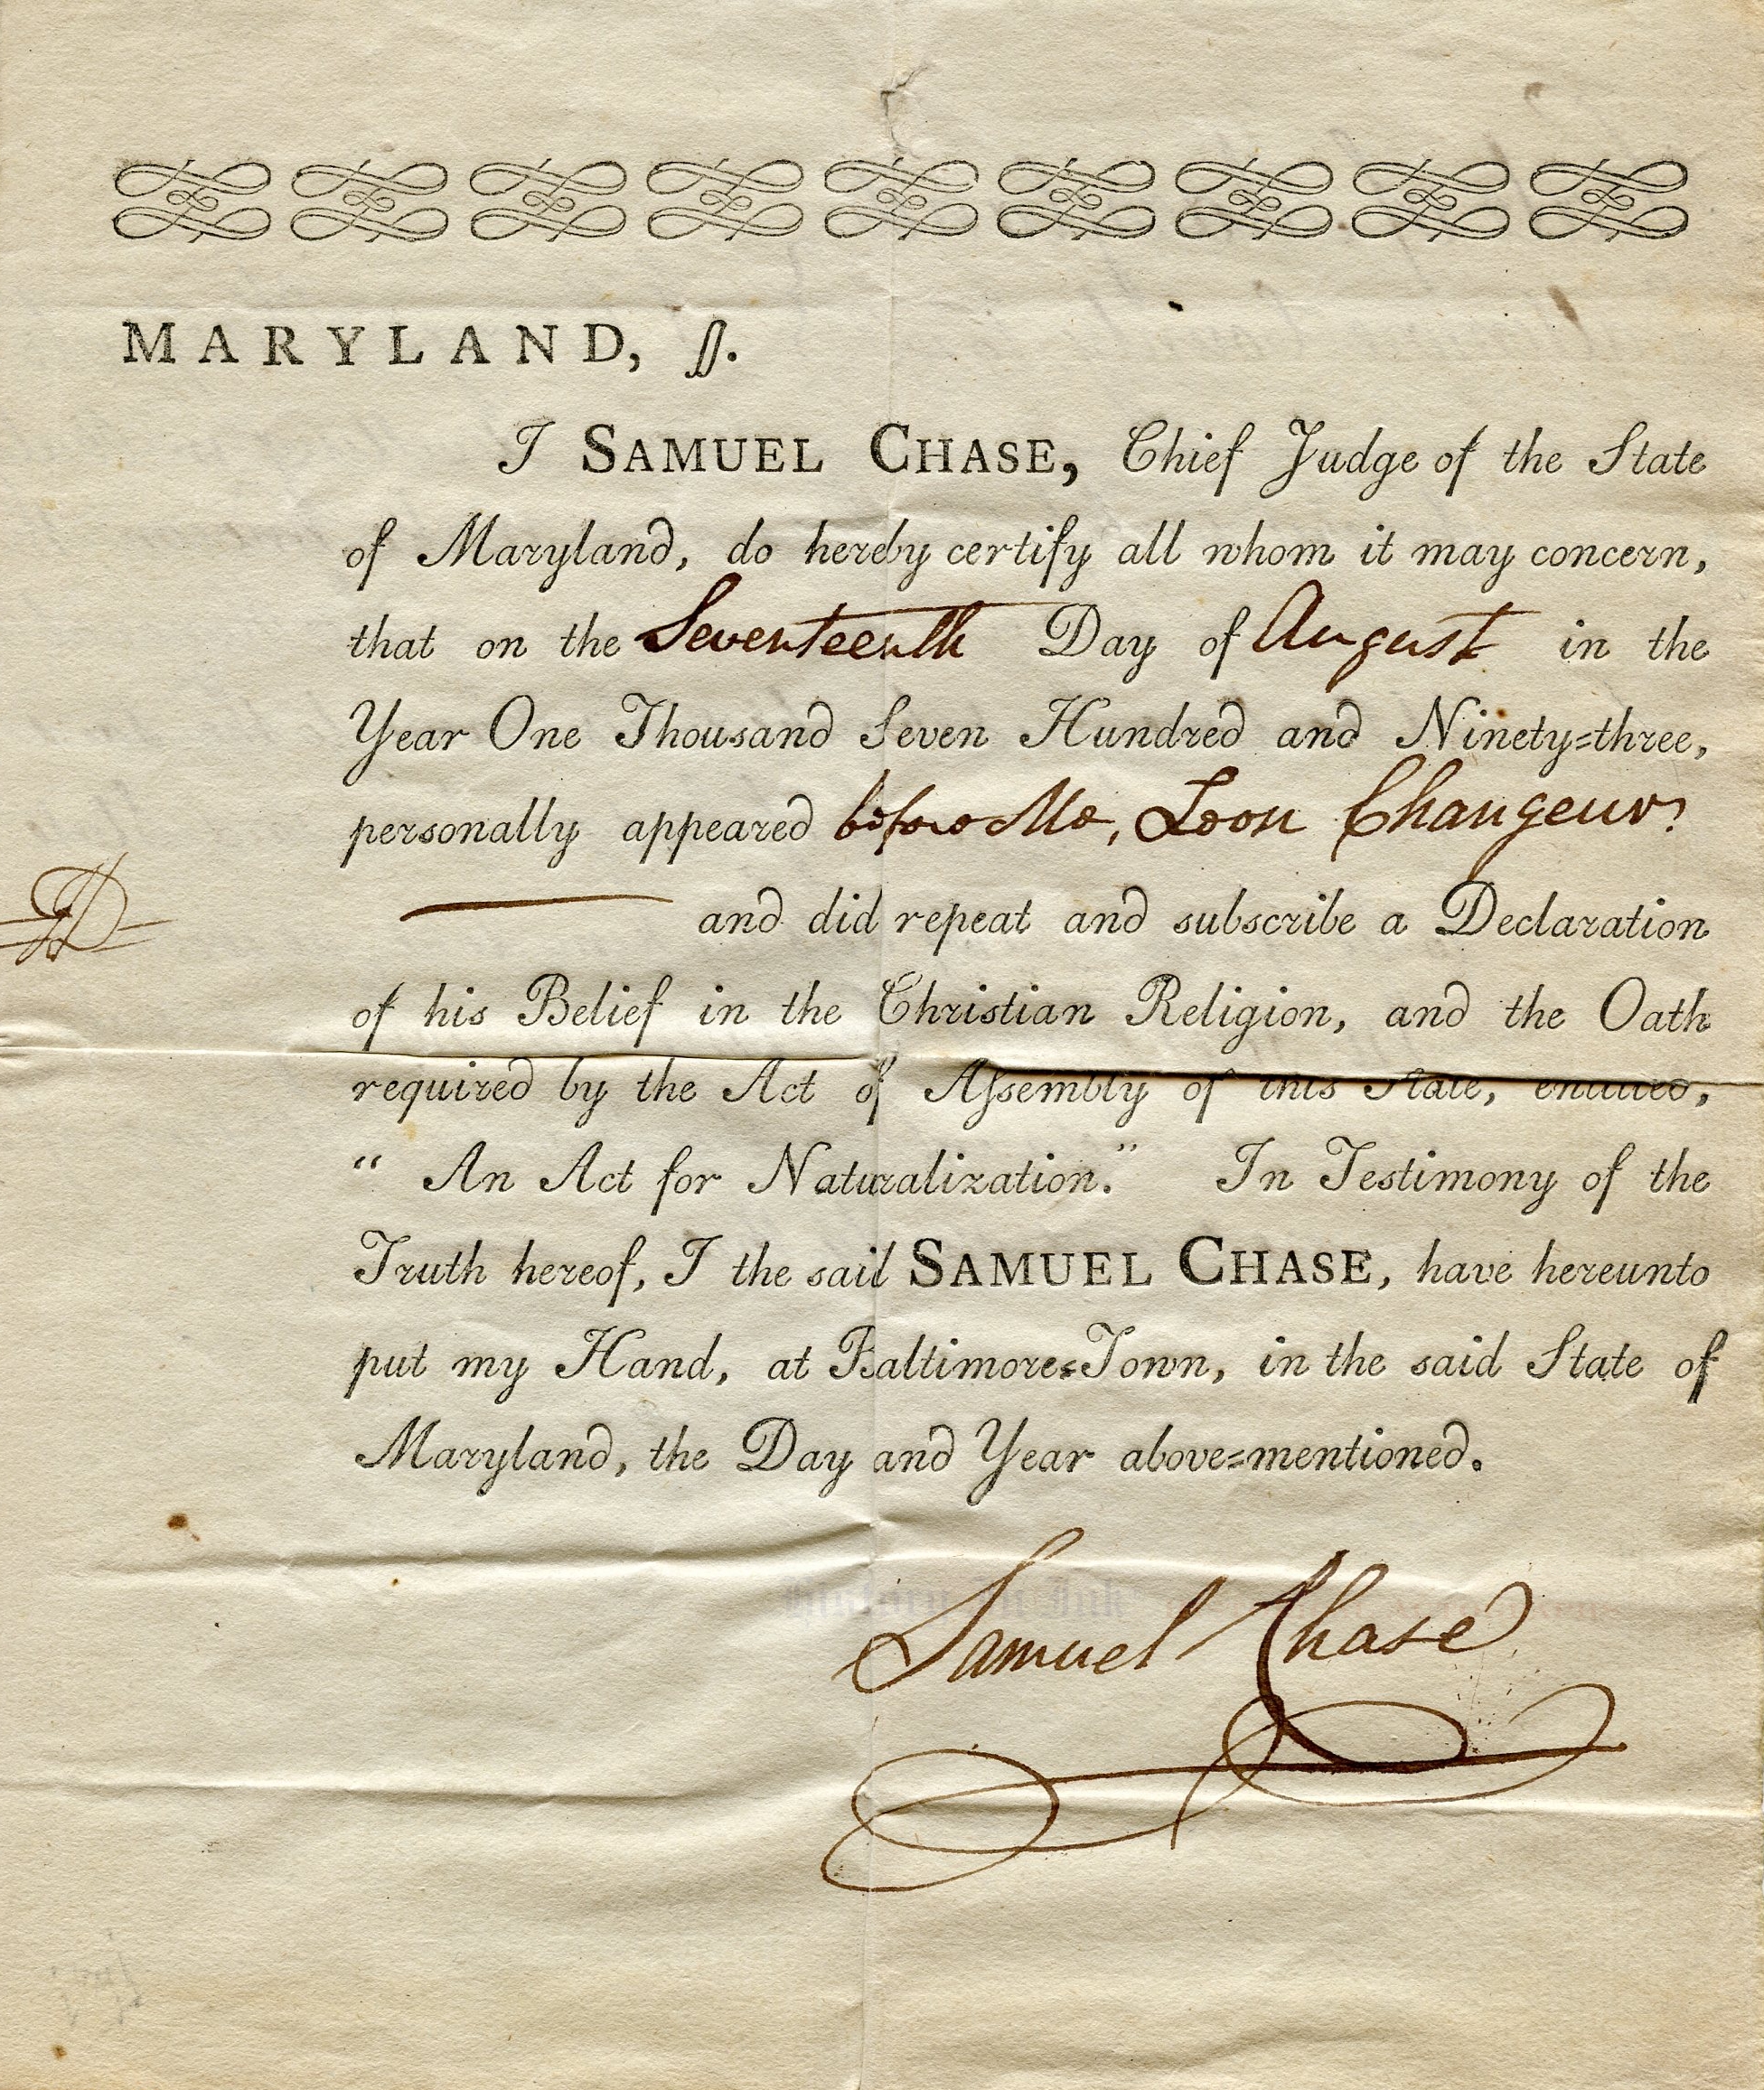 MARYLAND, ſſ.
I SAMUEL CHASE, Chief Judge of the State
of Maryland, do hereby certify all whom it may concern,
that on the Seventeenth Day of August in the
Year One Thousand Seven Hundred and Ninety=three,
personally appeared before Me, Leon Changeur
and did repeat and subscribe a Declaration
of his Belief in the Christian Religion, and the Oath
required by the Act of Aſsembly of this State, entitled,
“ An Act for Naturalization.” In Testimony of the
Truth hereof, I the said SAMUEL CHASE, have hereunto
put my Hand, at Baltimore=Town, in the said State of
Maryland, the Day and Year above=mentioned.
Samuel Chase